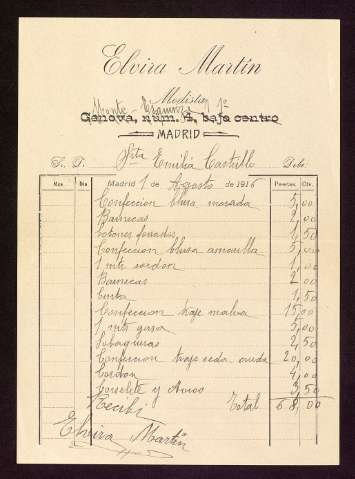 Elvira Martín
Modista
Monte-Esquinza
Genova, núm. 4, bajo centro
MADRID
S. D. Srta Emilia Castillo Debe.
Mes Día Madrid 1 de Agosto de 1916 Pesetas. Cts.
Confeccion blusa morada 5,00
Barnecas 2,00
botones forrados 1,50
Confeccion blusa amarilla 5,00
1 mtr cordon 1,00
Barnecas 2,00
Cinta 1,50
Confeccion traje malva 15,00
1 mtr gasa 5,00
Sobaqueras 2,50
Confeccion traje seda cruda 20,00
Cordon 4,00
Corselete y Avios 3,50
Recibí Total 68,00
Elvira Martín